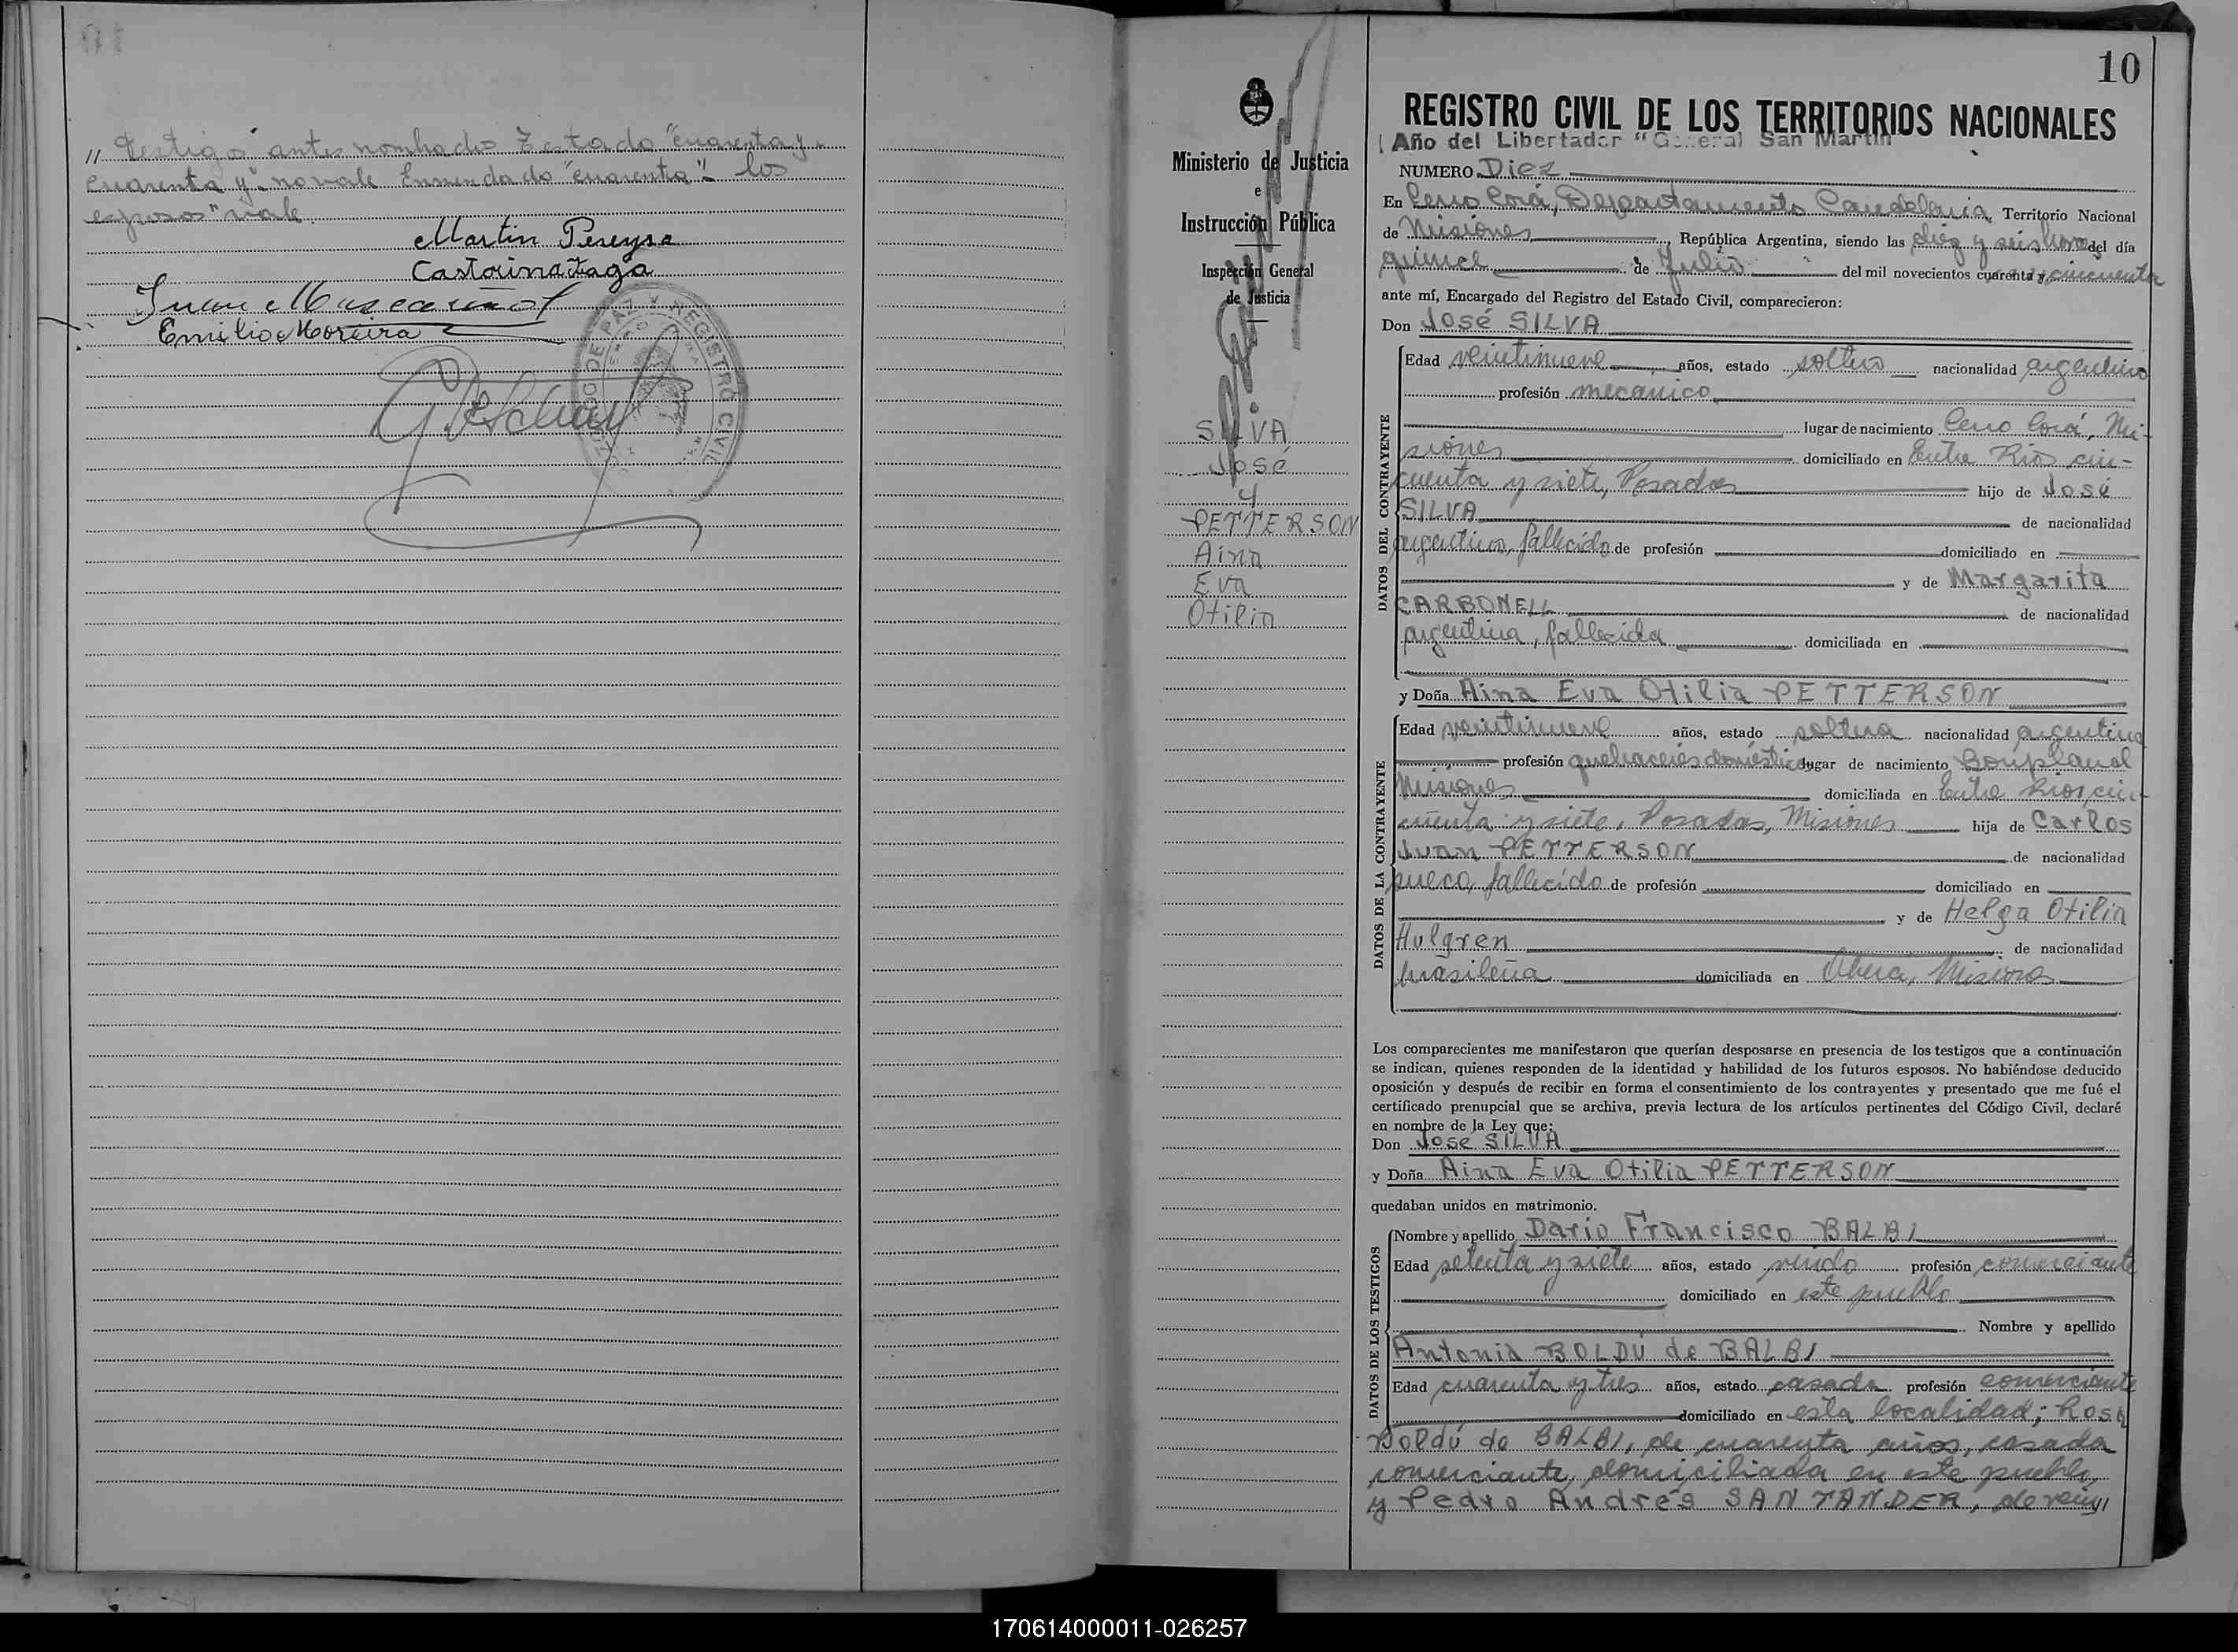 „ testigo" antes nombrados Testado "cuarenta y"
cuarenta y" no vale Enmendado "cuarenta" - los
esposos" vale
Martin Pereyra
Castorina
Juan
Emilio Moreira
JUZGADO DE PAZ Y REGISTRO CIVIL
Ministerio de Justicia
e
Instrucción Pública
Inspección General
de Justicia
SILVA
José
y
PETTERSON
Aina
Eva
Otilia
10
REGISTRO CIVIL DE LOS TERRITORIOS NACIONALES
Año del Libertador "General San Martín"
NUMERO Diez
En Cerro Corá, Departamento Candelaria Territorio Nacional
de Misiones, República Argentina, siendo las diez y seis horas del día
quince de Julio del mil novecientos cuarenta y cincuenta
ante mí, Encargado del Registro del Estado Civil, comparecieron:
Don José SILVA
DATOS DEL CONTRAYENTE
Edad veintinueve años, estado soltero nacionalidad argentino
profesión mecánico
lugar de nacimiento Cerro Corá, Mi-
siones domiciliado en Entre Rios cin-
cuenta y siete, Posadas hijo de José
SILVA de nacionalidad
argentino, fallecido de profesión domiciliado en
y de Margarita
CARBONELL de nacionalidad
argentina, fallecida domiciliada en
y Doña Aina Eva Otilia PETTERSON
DATOS DE LA CONTRAYENTE
Edad veintinueve años, estado soltera nacionalidad argentina
profesión quehaceres domésticos lugar de nacimiento Bonpland
Misiones domiciliada en Entre Rios, cin-
cuenta y siete, Posadas, Misiones hija de Carlos
Juan PETTERSON de nacionalidad
sueco, fallecido de profesión domiciliado en
y de Helga Otilia
Hulgren de nacionalidad
brasileña domiciliada en Oberá, Misiones
Los comparecientes me manifestaron que querían desposarse en presencia de los testigos que a continuación
se indican, quienes responden de la identidad y habilidad de los futuros esposos. No habiéndose deducido
oposición y después de recibir en forma el consentimiento de los contrayentes y presentado que me fué el
certificado prenupcial que se archiva, previa lectura de los artículos pertinentes del Código Civil, declaré
en nombre de la Ley que:
Don José SILVA
y Doña Aina Eva Otilia PETTERSON
quedaban unidos en matrimonio.
DATOS DE LOS TESTIGOS
Nombre y apellido Dario Francisco BALBI
Edad setenta y siete años, estado viudo profesión comerciante
domiciliado en este pueblo
Nombre y apellido
Antonia BOLDÚ de BALBI
Edad cuarenta y tres años, estado casada profesión comerciante
domiciliado en esta localidad; Rosa
Boldú de BALBI, de cuarenta años, casada
comerciante, domiciliada en este pueblo,
y Pedro Andrés SANTANDER, de vein
170614000011-026257